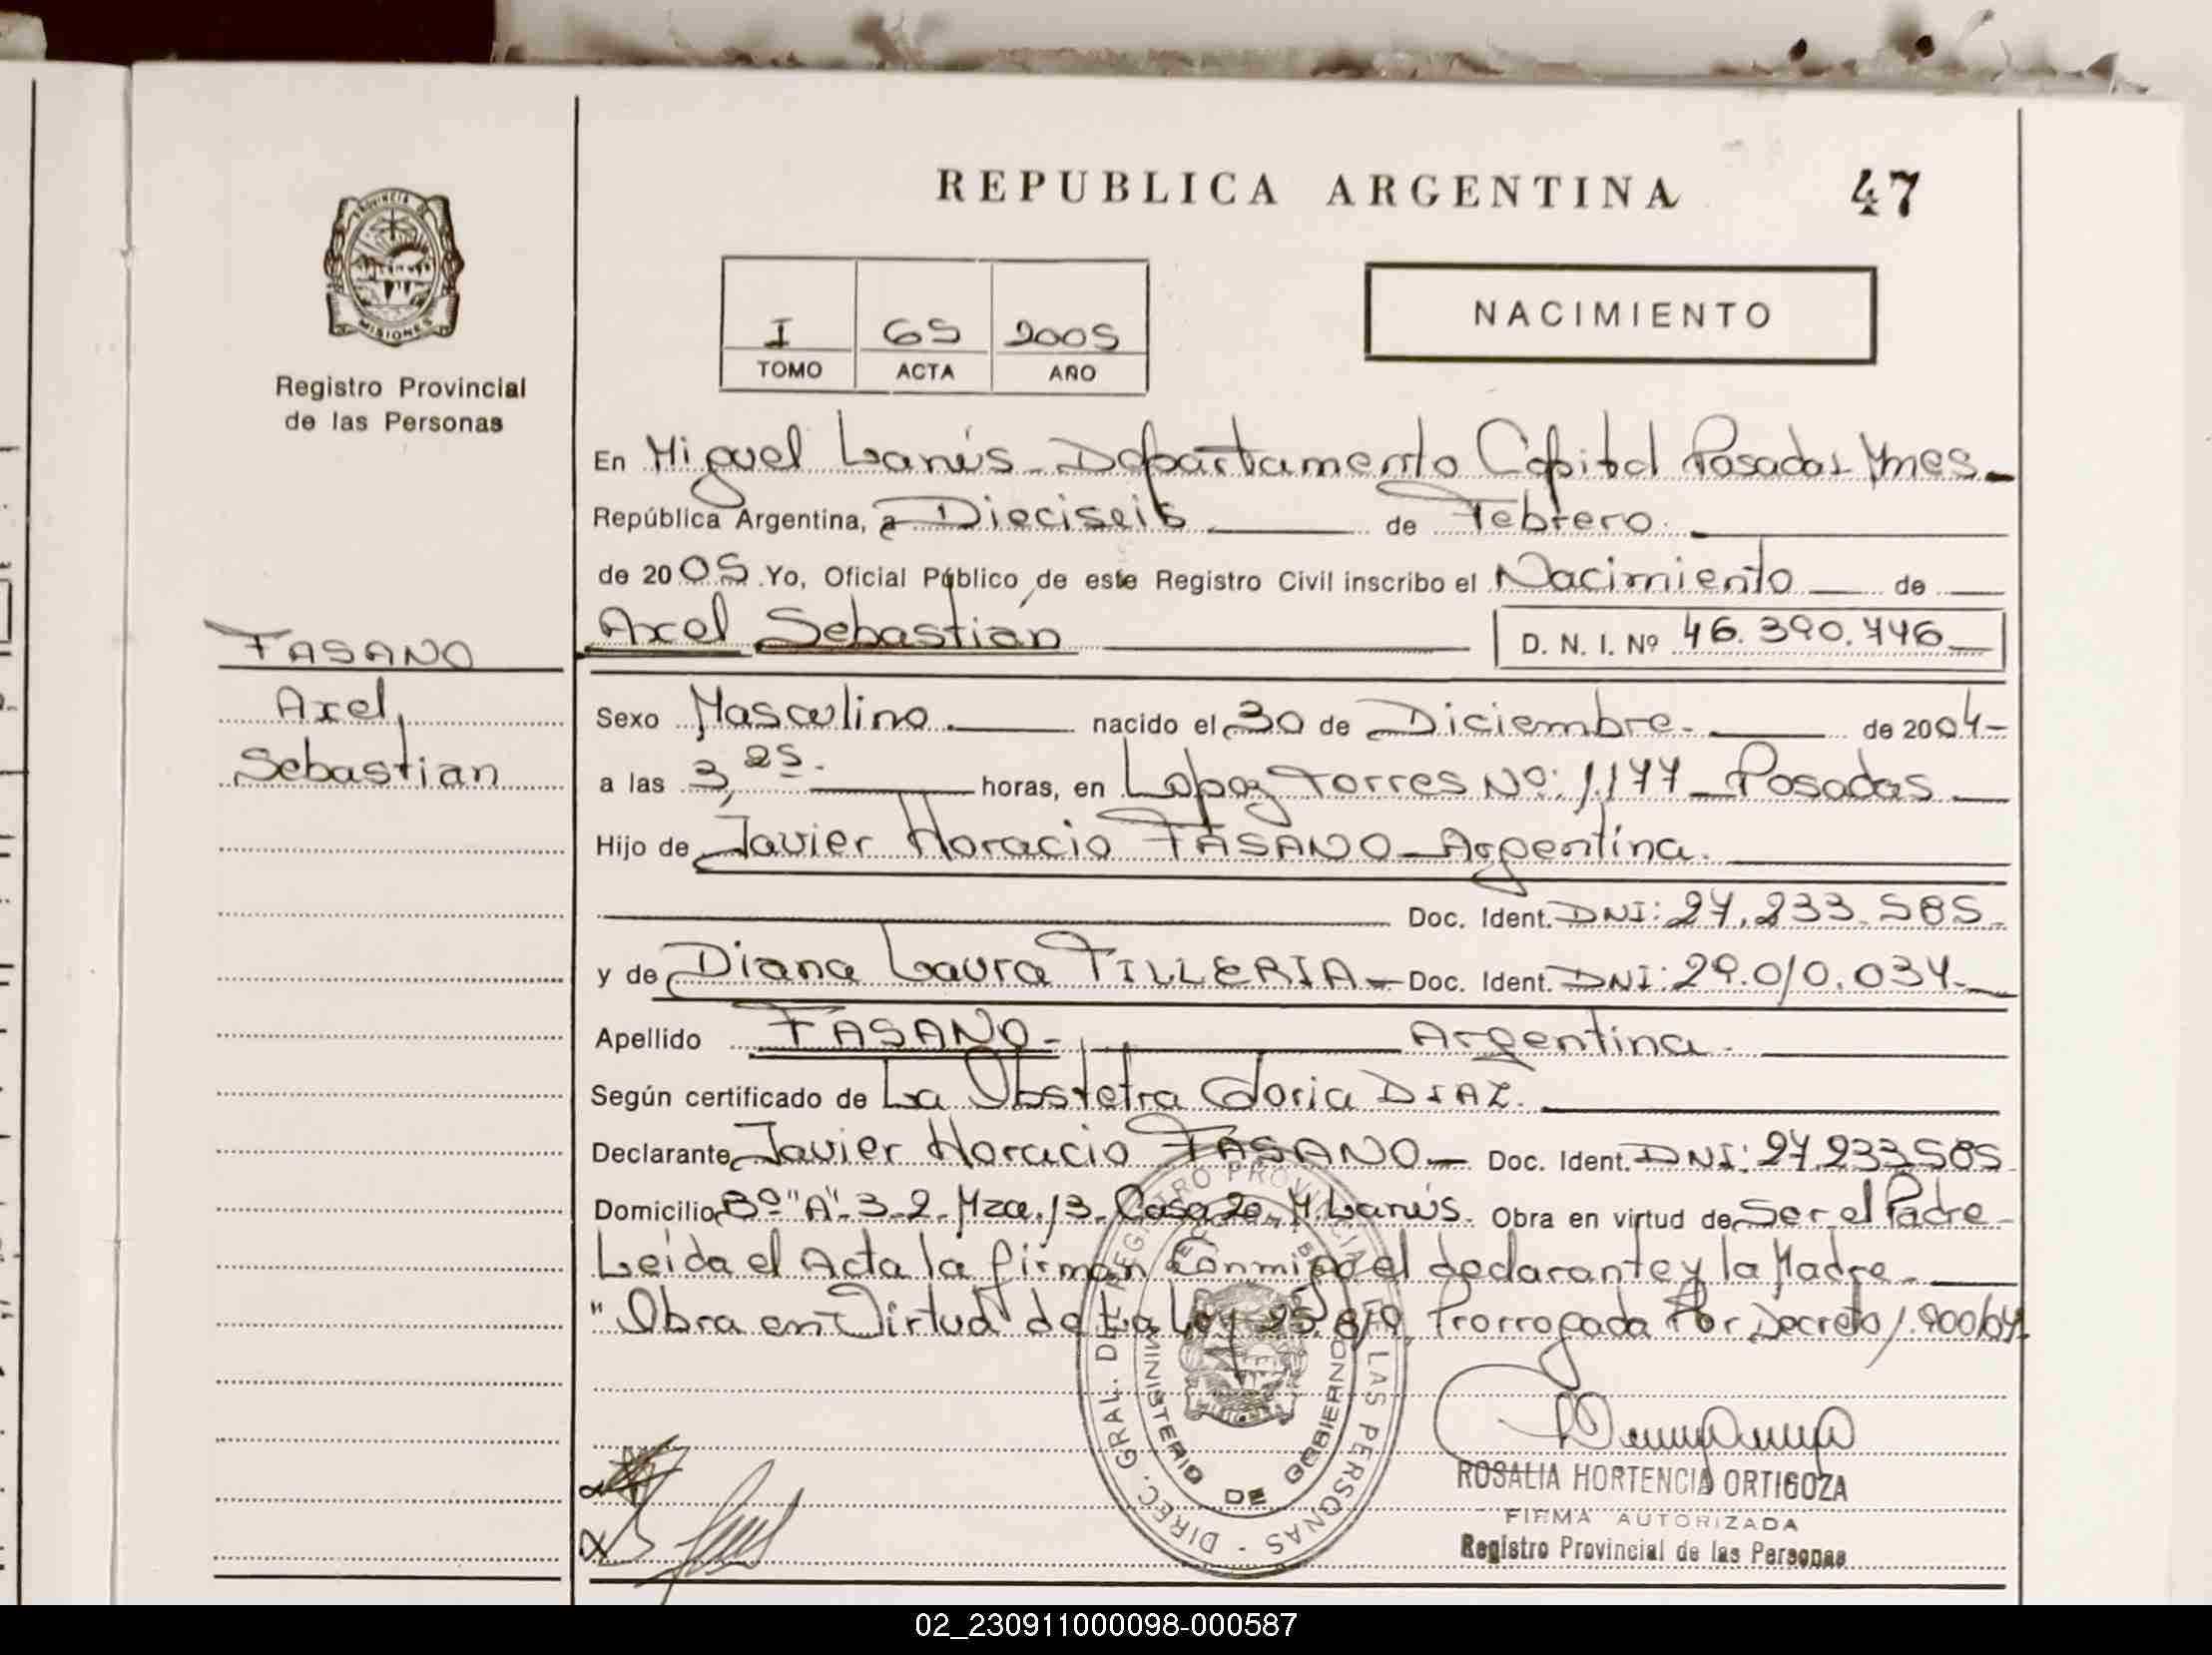 REPUBLICA ARGENTINA 47
PROVINCIA DE
MISIONES
Registro Provincial
de las Personas
I 65 2005
TOMO ACTA AÑO
NACIMIENTO
En Miguel Lanús - Departamento Capital Posadas Mnes.
República Argentina, a Dieciseis de Febrero.
de 2005 Yo, Oficial Público de este Registro Civil inscribo el Nacimiento de
Axel Sebastián D. N. I. Nº 46.390.446
FASANO
Axel,
Sebastian
Sexo Masculino. nacido el 30 de Diciembre. de 2004
a las 3,25. horas, en Lopez Torres Nº: 1.177 - Posadas
Hijo de Javier Horacio FASANO - Argentina.
Doc. Ident. DNI: 27.233.585.
y de Diana Laura TILLERIA - Doc. Ident. DNI: 29.010.034.
Apellido FASANO - Argentina.
Según certificado de La Obstetra Gloria DIAZ.
Declarante Javier Horacio FASANO - Doc. Ident. DNI: 27.233585
Domicilio Bº "A"-3-2- Mza. 13 - Casa 20 - M. Lanús. Obra en virtud de Ser el Padre -
Leida el Acta la firman Conmigo el declarante y la Madre -
"Obra en Virtud de La Ley 25.819, Prorrogada Por Decreto 1.900/04.
DIREC. GRAL. DE REGISTRO PROVINCIAL DE LAS PERSONAS -
MINISTERIO DE GOBIERNO
ROSALIA HORTENCIA ORTIGOZA
FIRMA AUTORIZADA
Registro Provincial de las Personas
02_230911000098-000587